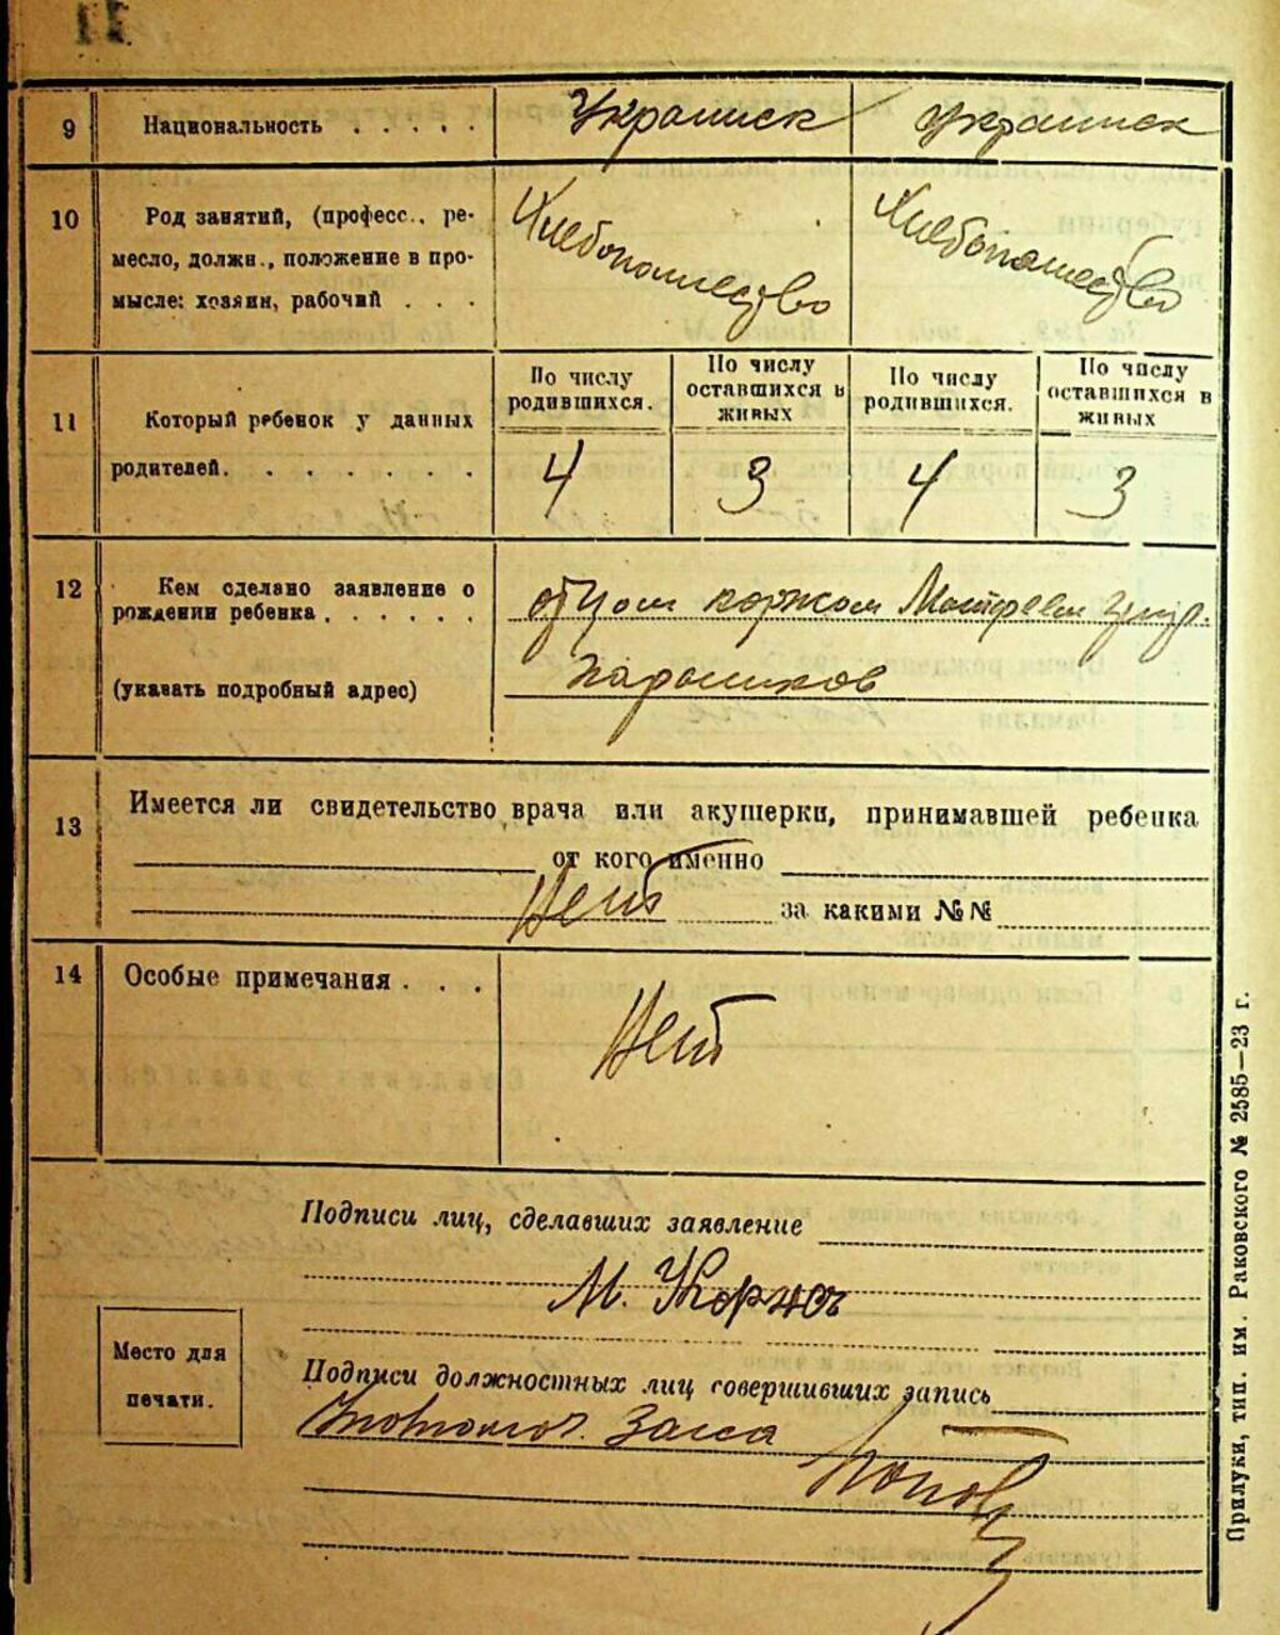 11
9 Национальность . . . . . Украинск Украинск
10 Род занятий, (професс., ре-
месло, должн., положение в про-
мысле: хозяин, рабочий . . . Хлебопашество Хлебопашество
11 Который ребенок у данных
родителей. . . . . . .
По числу родившихся. По числу оставшихся в живых По числу родившихся. По числу оставшихся в живых
4 3 4 3
12 Кем сделано заявление о
рождении ребенка . . . . . отцом Коржом
(указать подробный адрес)
13 Имеется ли свидетельство врача или акушерки, принимавшей ребенка
от кого именно
Нет за какими №№
14 Особые примечания . . . Нет
Подписи лиц, сделавших заявление
М. Корж
Место для
печати.
Подписи должностных лиц совершивших запись
Загса
Попов
Прилуки, тип. им. Раковского № 2585—23 г.